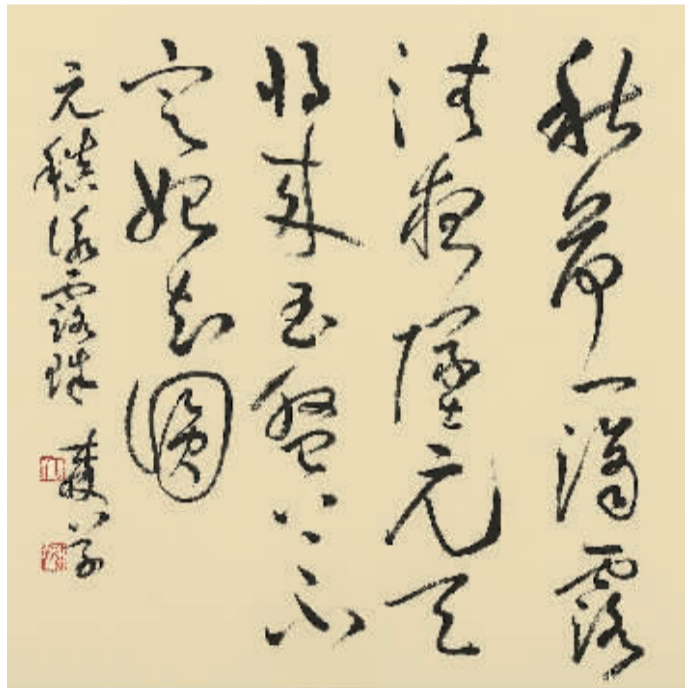 秋荷一滴露
清夜墜元天
將來玉盤上不
定始知圓
元稹詠露珠